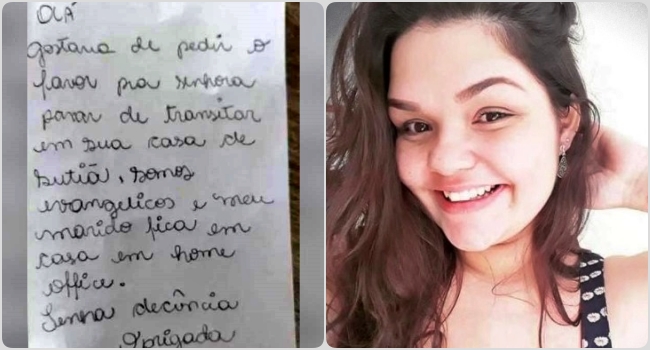 OLÁ
gostaria de pedir o
favor pra senhora
parar de transitar
em sua casa de
sutiã, somos
evangelicos e meu
marido fica em
casa em home
office.
Tenha decência
Obrigada